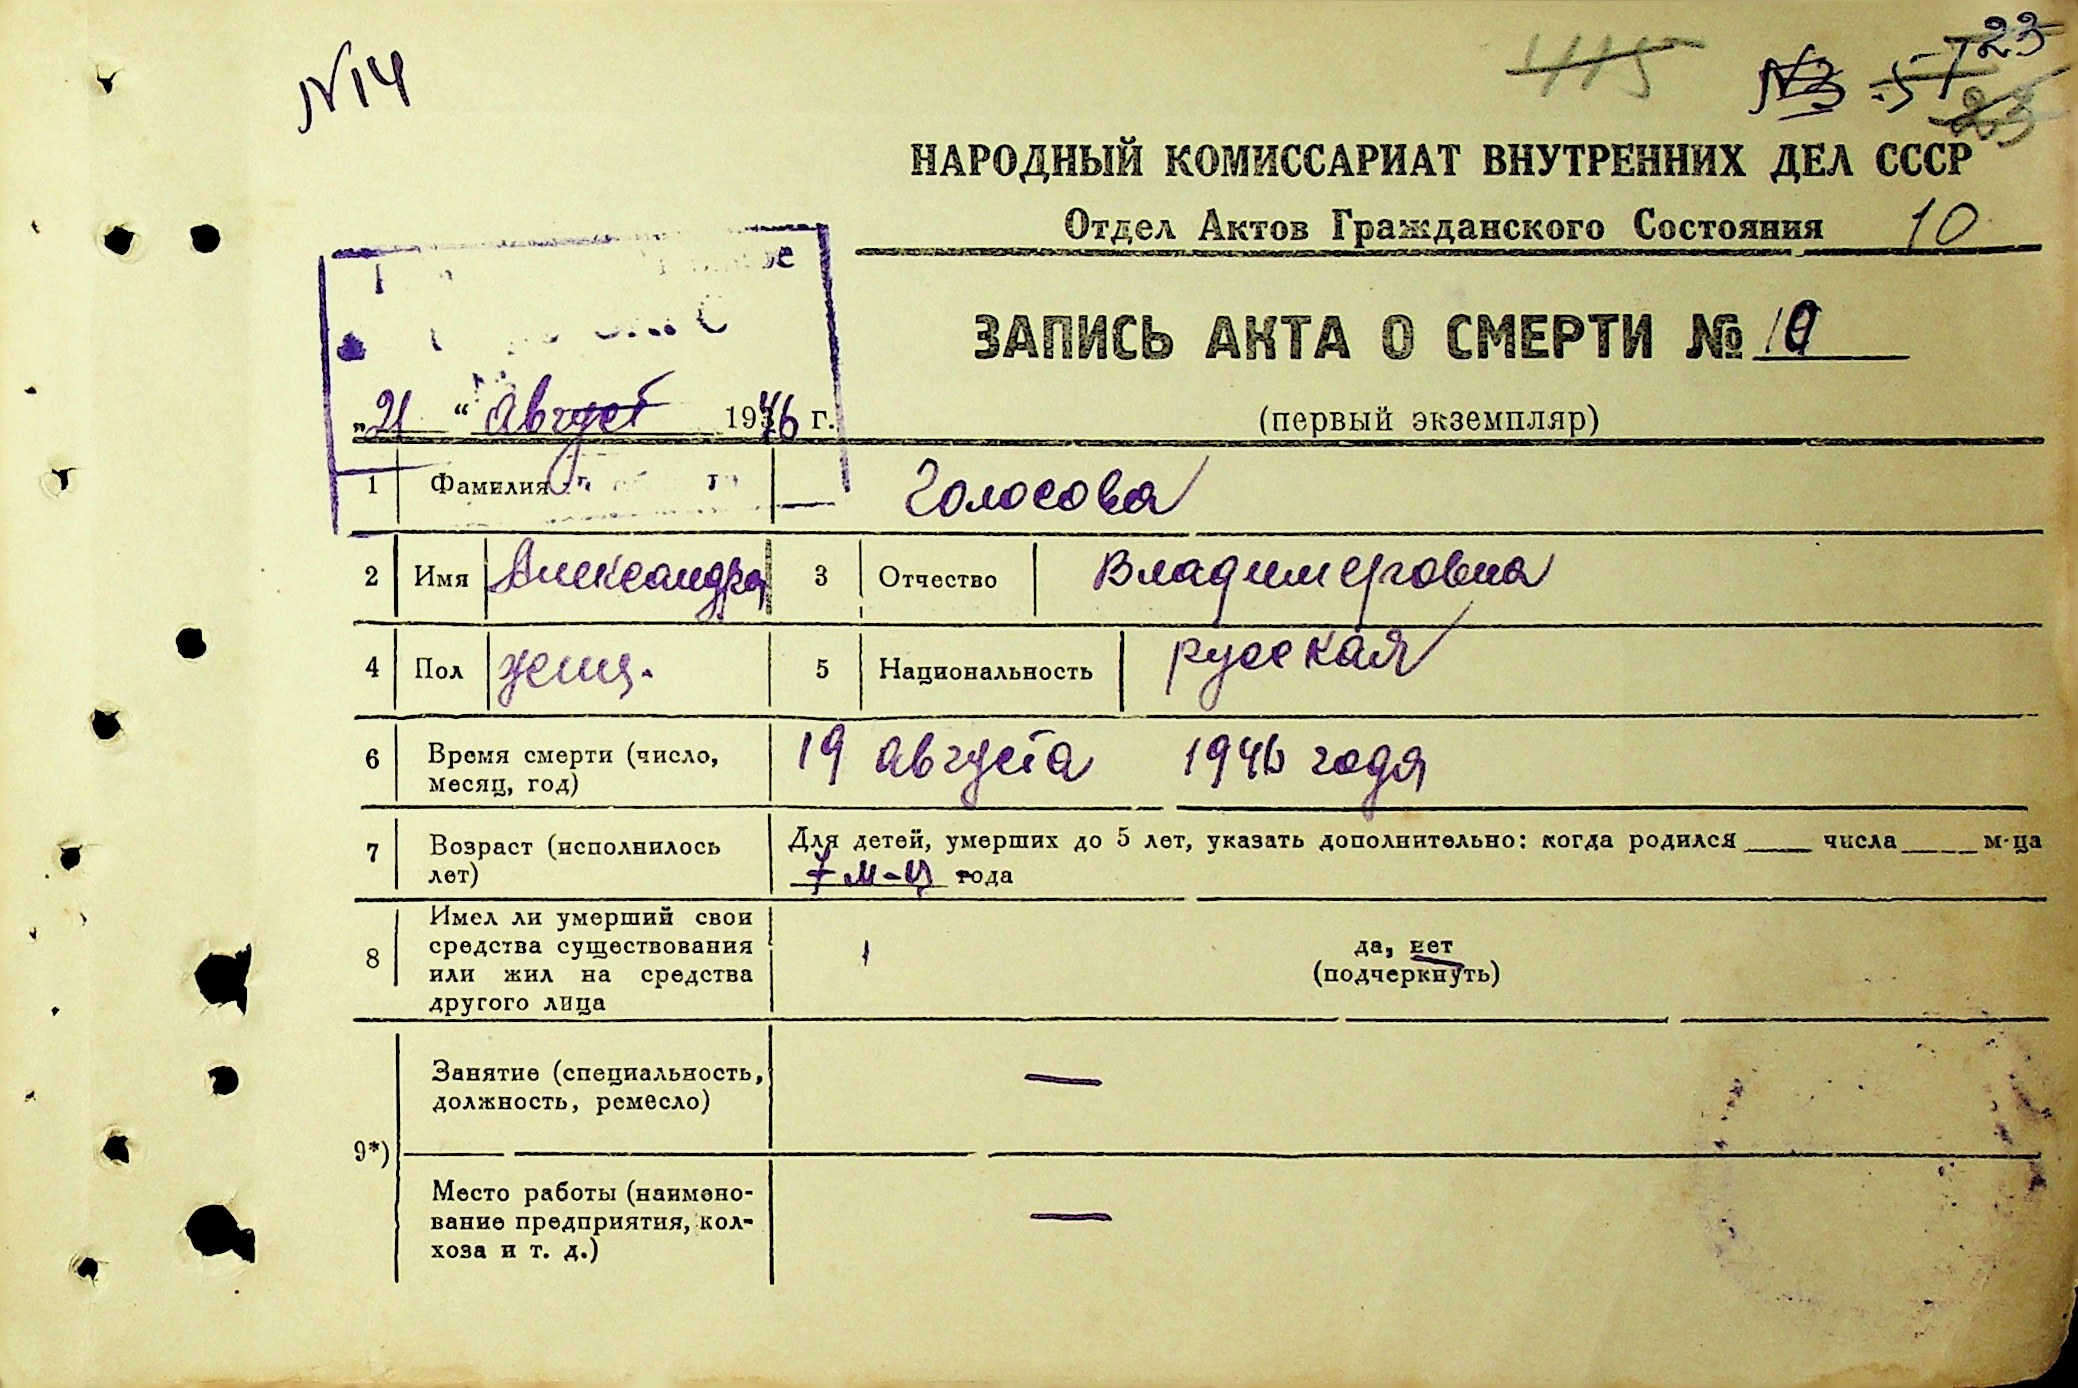 N14
415
N3 57 23
23
НАРОДНЫЙ КОМИССАРИАТ ВНУТРЕННИХ ДЕЛ СССР
Отдел Актов Гражданского Состояния 10
ЗАПИСЬ АКТА О СМЕРТИ № 10
„21“ август 1946 г.
(первый экземпляр)
1 Фамилия Голосова
2 Имя Александра 3 Отчество Владимеровна
4 Пол женщ. 5 Национальность русская
6 Время смерти (число, месяц, год) 19 августа 1946 года
7 Возраст (исполнилось лет) Для детей, умерших до 5 лет, указать дополнительно: когда родился ____ числа ____ м-ца
7 м-ц года
8 Имел ли умерший свои средства существования или жил на средства другого лица
да, нет
(подчеркнуть)
9*) Занятие (специальность, должность, ремесло) —
Место работы (наименование предприятия, колхоза и т. д.) —